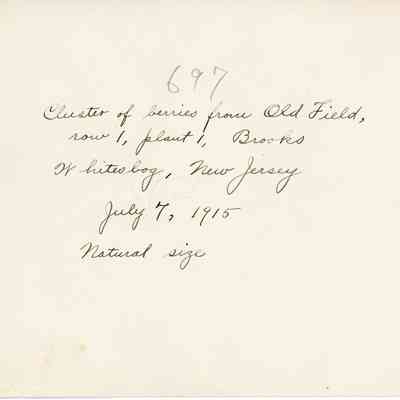 697
Cluster of berries from Old Field,
row 1, plant 1, Brooks
Whitesbog, New Jersey
July 7, 1915
Natural size